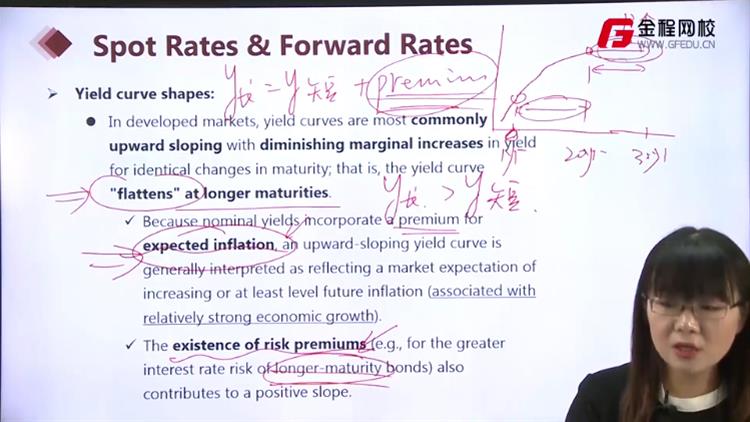 Spot Rates & Forward Rates
金程网校
WWW.GFEDU.CN
Yield curve shapes:
y长 = y短 + premium
In developed markets, yield curves are most commonly
upward sloping with diminishing marginal increases in yield
for identical changes in maturity; that is, the yield curve
"flattens" at longer maturities.
y长 > y短
Because nominal yields incorporate a premium for
expected inflation, an upward-sloping yield curve is
generally interpreted as reflecting a market expectation of
increasing or at least level future inflation (associated with
relatively strong economic growth).
The existence of risk premiums (e.g., for the greater
interest rate risk of longer-maturity bonds) also
contributes to a positive slope.